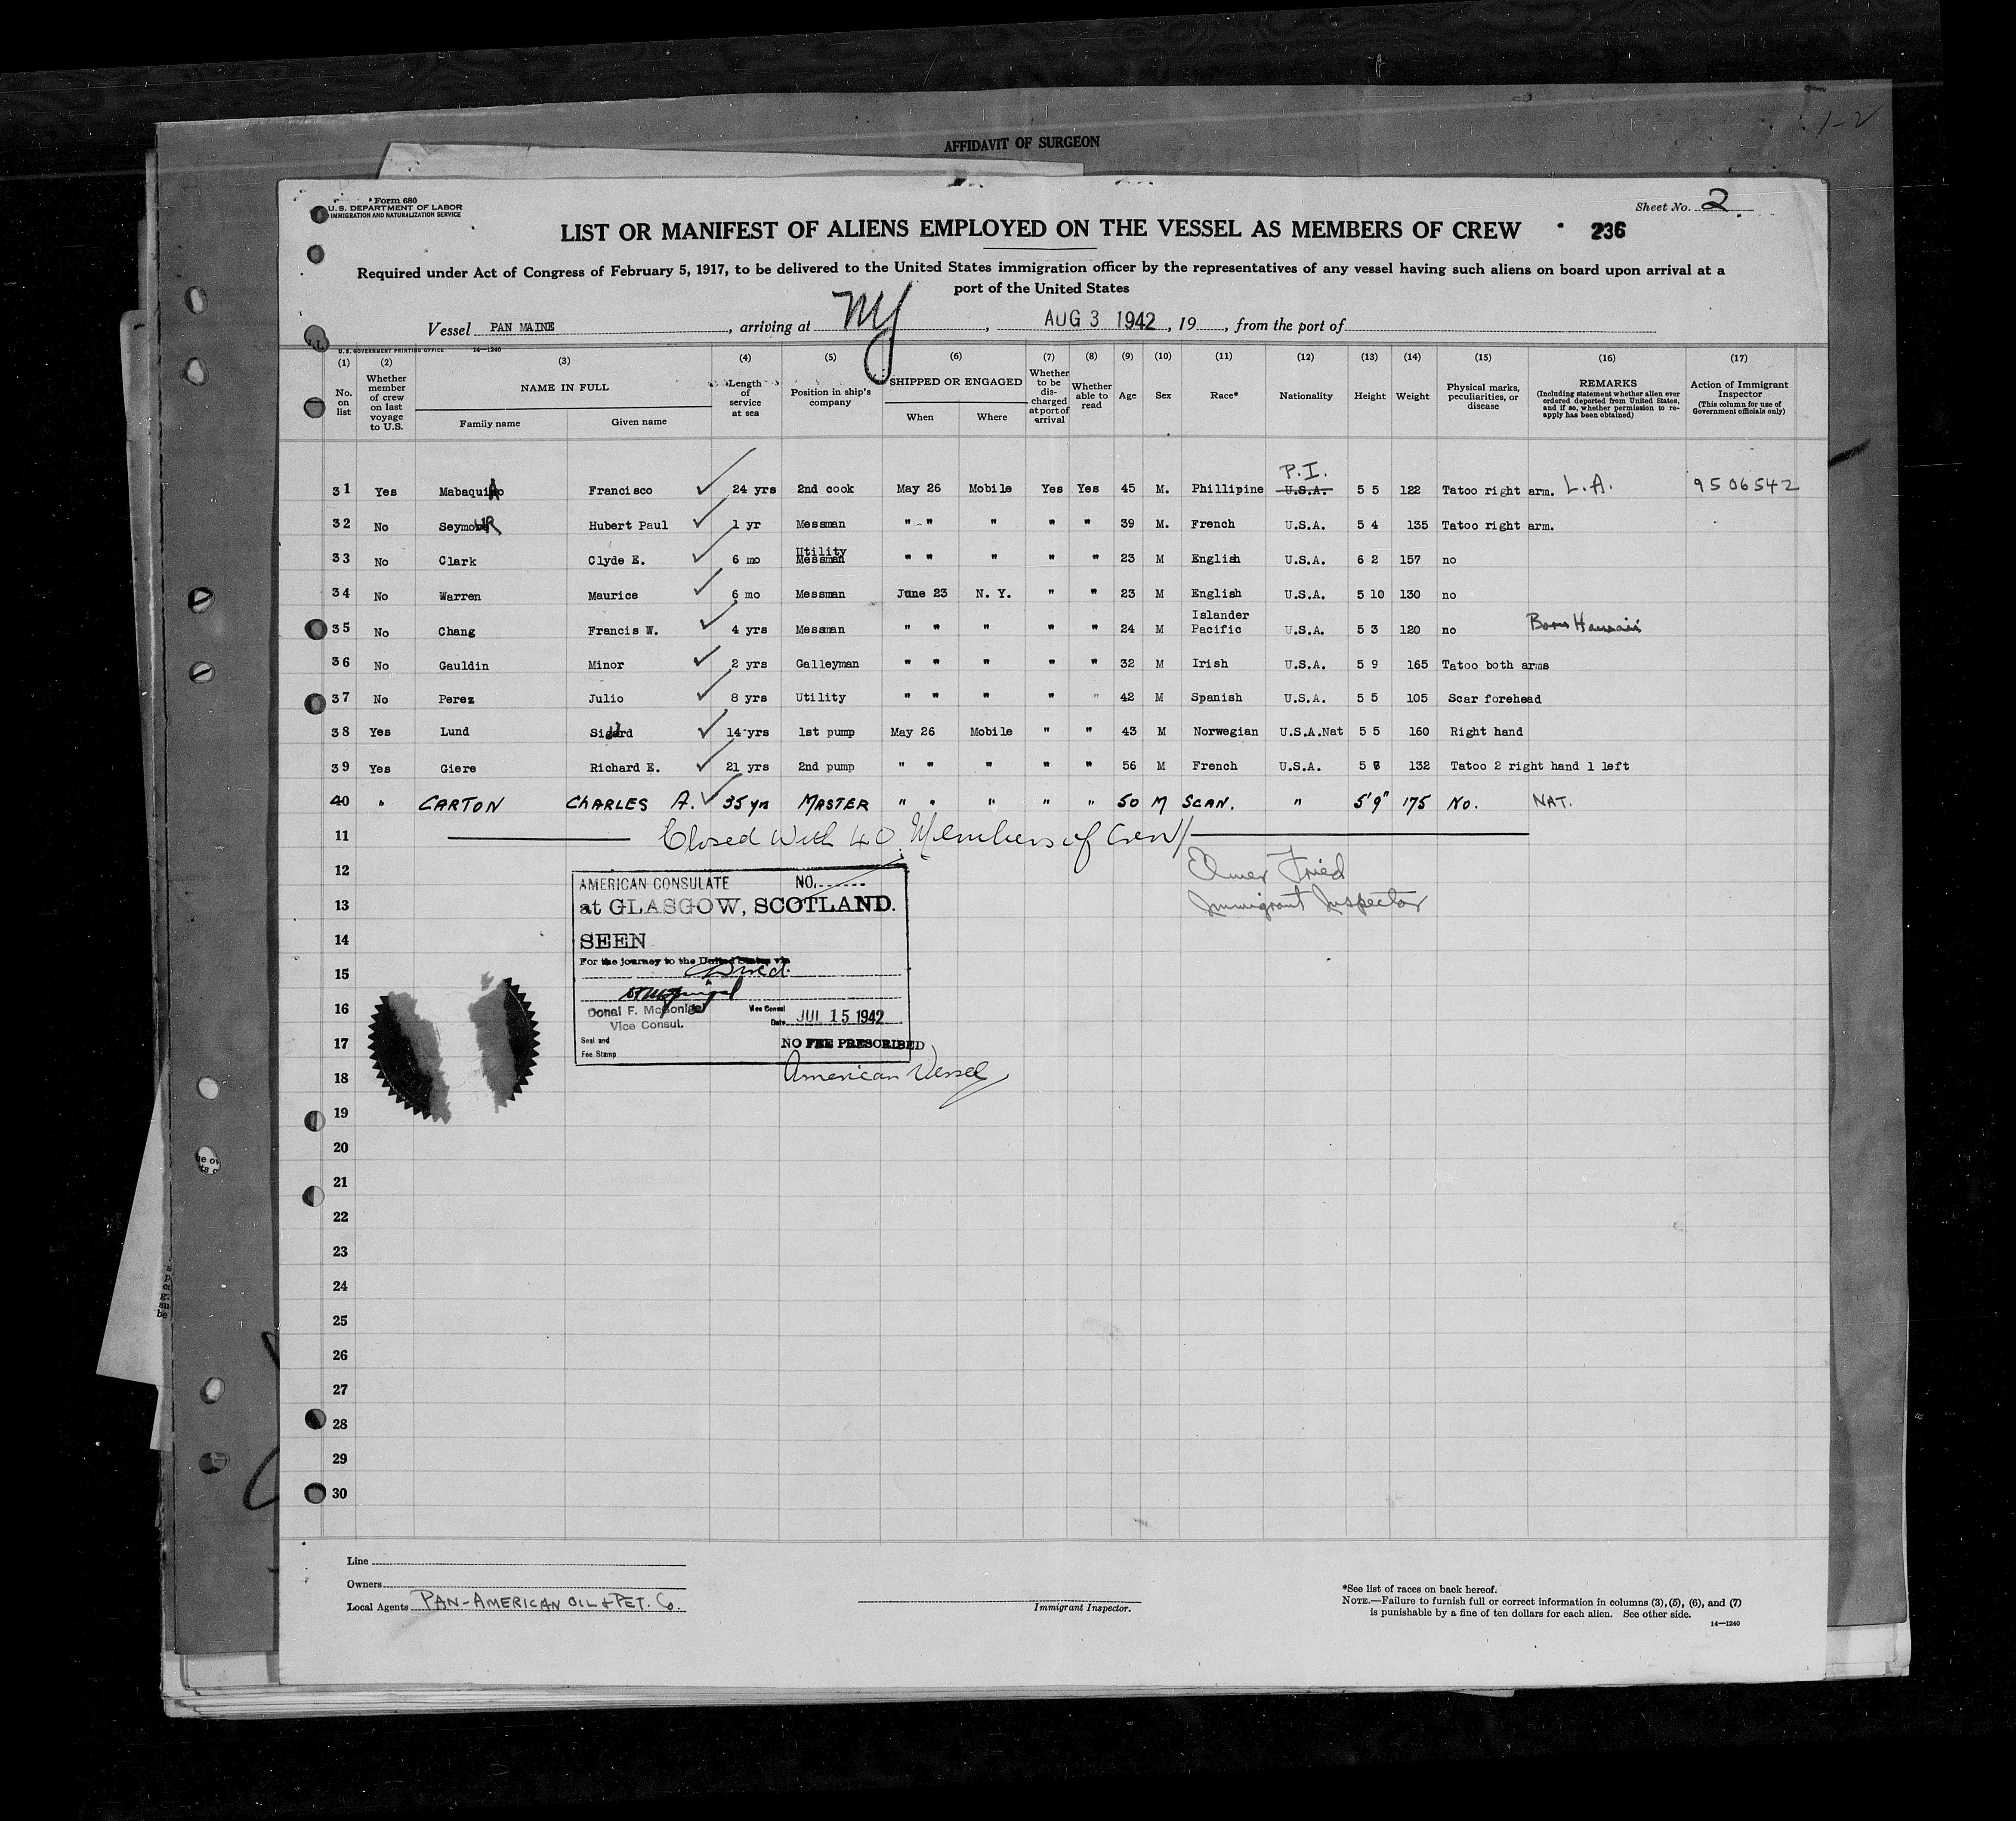 AFFIDAVIT OF SURGEON
Form 680
U.S. DEPARTMENT OF LABOR
IMMIGRATION AND NATURALIZATION SERVICE
Sheet No. 2
LIST OR MANIFEST OF ALIENS EMPLOYED ON THE VESSEL AS MEMBERS OF CREW 236
Required under Act of Congress of February 5, 1917, to be delivered to the United States immigration officer by the representatives of any vessel having such aliens on board upon arrival at a
port of the United States
Vessel PAN MAINE, arriving at NY, AUG 3 1942, 19, from the port of
U.S. GOVERNMENT PRINTING OFFICE 14—1240
(1) (2) (3) (4) (5) (6) (7) (8) (9) (10) (11) (12) (13) (14) (15) (16) (17)
No. on list
Whether member of crew on last voyage to U.S.
NAME IN FULL
Family name Given name
Length of service at sea
Position in ship's company
SHIPPED OR ENGAGED
When Where
Whether to be discharged at port of arrival
Whether able to read
Age Sex Race* Nationality Height Weight
Physical marks, peculiarities, or disease
REMARKS
(Including statement whether alien ever ordered deported from United States, and if so, whether permission to reapply has been obtained)
Action of Immigrant Inspector
(This column for use of Government officials only)
P.I.
31 Yes Mabaquiao Francisco 24 yrs 2nd cook May 26 Mobile Yes Yes 45 M. Phillipine U.S.A. 5 5 122 Tatoo right arm. L.A. 9506542
32 No Seymour Hubert Paul 1 yr Messman " " " " " 39 M. French U.S.A. 5 4 135 Tatoo right arm.
Utility
33 No Clark Clyde E. 6 mo Messman " " " " " 23 M English U.S.A. 6 2 157 no
34 No Warren Maurice 6 mo Messman June 23 N. Y. " " 23 M English U.S.A. 5 10 130 no
Islander
35 No Chang Francis W. 4 yrs Messman " " " " " 24 M Pacific U.S.A. 5 3 120 no Born Hawaii
36 No Gauldin Minor 2 yrs Galleyman " " " " " 32 M Irish U.S.A. 5 9 165 Tatoo both arms
37 No Perez Julio 8 yrs Utility " " " " " 42 M Spanish U.S.A. 5 5 105 Scar forehead
38 Yes Lund Sigurd 14 yrs 1st pump May 26 Mobile " " 43 M Norwegian U.S.A.Nat 5 5 160 Right hand
39 Yes Giere Richard E. 21 yrs 2nd pump " " " " " 56 M French U.S.A. 5 132 Tatoo 2 right hand 1 left
40 " CARTON CHARLES A. 35 yrs MASTER " " " " " 50 M SCAN. " 5'9" 175 No. NAT.
11 Closed With 40 Members of Crew
12 Elmer Fried
13 Immigrant Inspector
14
15
16
17
18
19
20
21
22
23
24
25
26
27
28
29
30
AMERICAN CONSULATE NO.
at GLASGOW, SCOTLAND.
SEEN
For the journey to the United States via
Direct.
Donal F. McGonigal Vice Consul
Vice Consul. Date JUL 15 1942
Seal and NO FEE PRESCRIBED
Fee Stamp
American Vessel
Line
Owners
Local Agents PAN-AMERICAN OIL & PET. Co.
Immigrant Inspector.
*See list of races on back hereof.
NOTE.—Failure to furnish full or correct information in columns (3), (5), (6), and (7)
is punishable by a fine of ten dollars for each alien. See other side.
14—1240